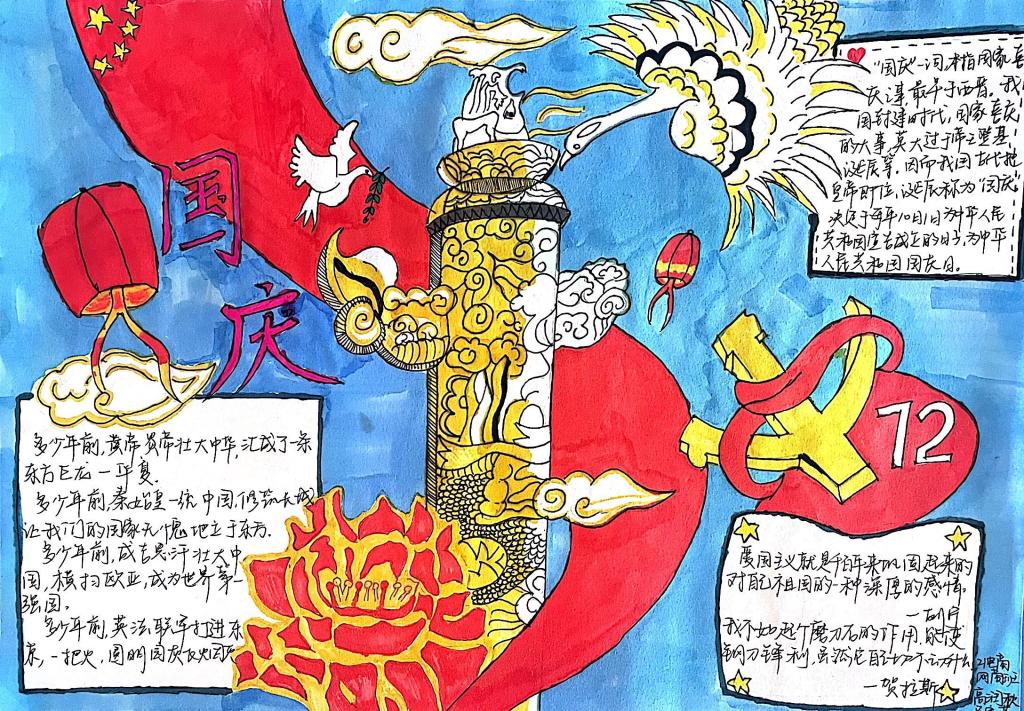 国
庆
72
"国庆"一词,本指国家喜
庆之事,最早于西晋。我
国封建时代,国家喜庆
的大事,莫大过于帝王登基
诞辰等。因而我国古代把
皇帝即位,诞辰称为"国庆"
决定于每年10月1日为中华人民
共和国宣告成立的日子,为中华
人民共和国国庆日。
多少年前,黄帝炎帝壮大中华,汇成了一条
东方巨龙一华夏.
多少年前,秦始皇一统中国,修筑长城
让我们的国家无愧地立于东方.
多少年前,成吉思汗壮大中
国,横扫欧亚,成为世界第一
强国。
多少年前,英法联军打进东
京,一把火,圆明园
爱国主义就是千百年来巩固起来的
对自己祖国的一种深厚的感情。
我不如起个磨刀石的作用,能使
钢刀锋利,虽然它自己切不动什么
一贺拉斯
21电商